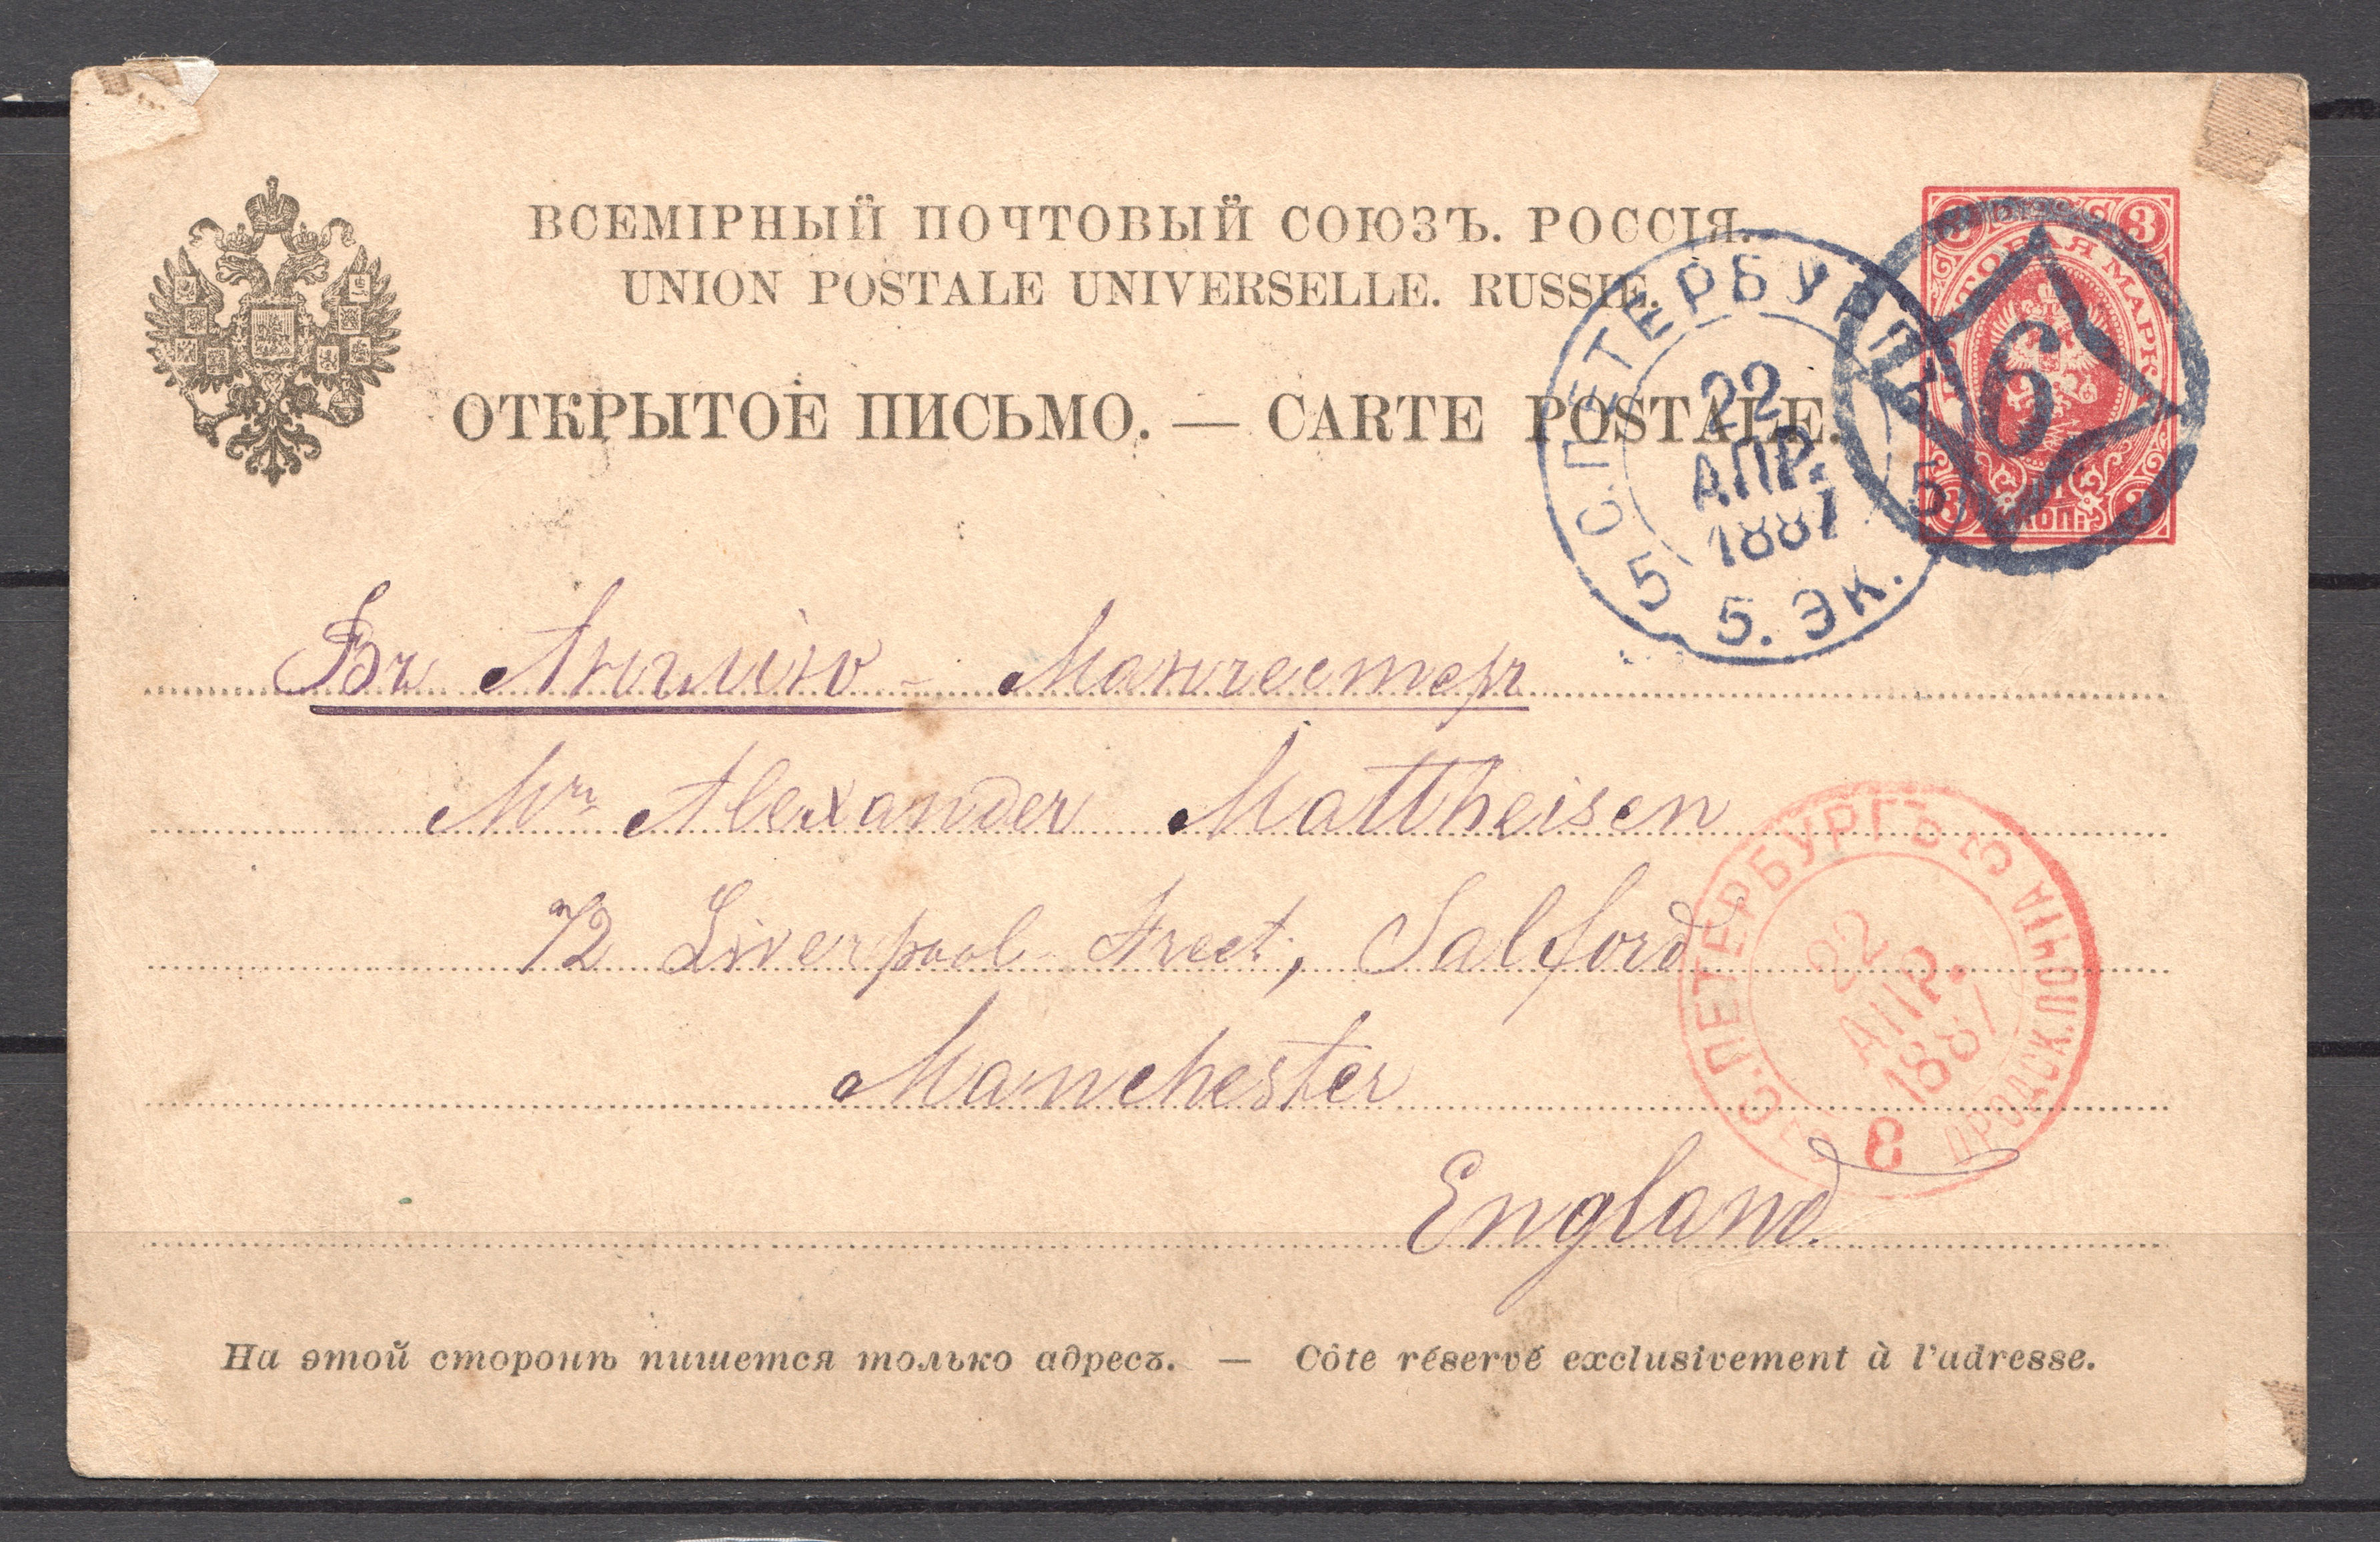 ВСЕМІРНЫЙ ПОЧТОВЫЙ СОЮЗЪ. РОССІЯ.
UNION POSTALE UNIVERSELLE. RUSSIE.
ОТКРЫТОЕ ПИСЬМО. — CARTE POSTALE.
3 3
ПОЧТОВАЯ МАРКА
3 КОП. 3
6
С.ПЕТЕРБУРГЪ
22
АПР.
1887
5 5. ЭК. 5
Въ Англію - Манчестеръ
Mr. Alexander Mattheisen
72 Liverpool Street, Salford
Manchester
England.
С.ПЕТЕРБУРГЪ
22
АПР.
1887
8
На этой сторонѣ пишется только адресъ. — Côte réservé exclusivement à l'adresse.